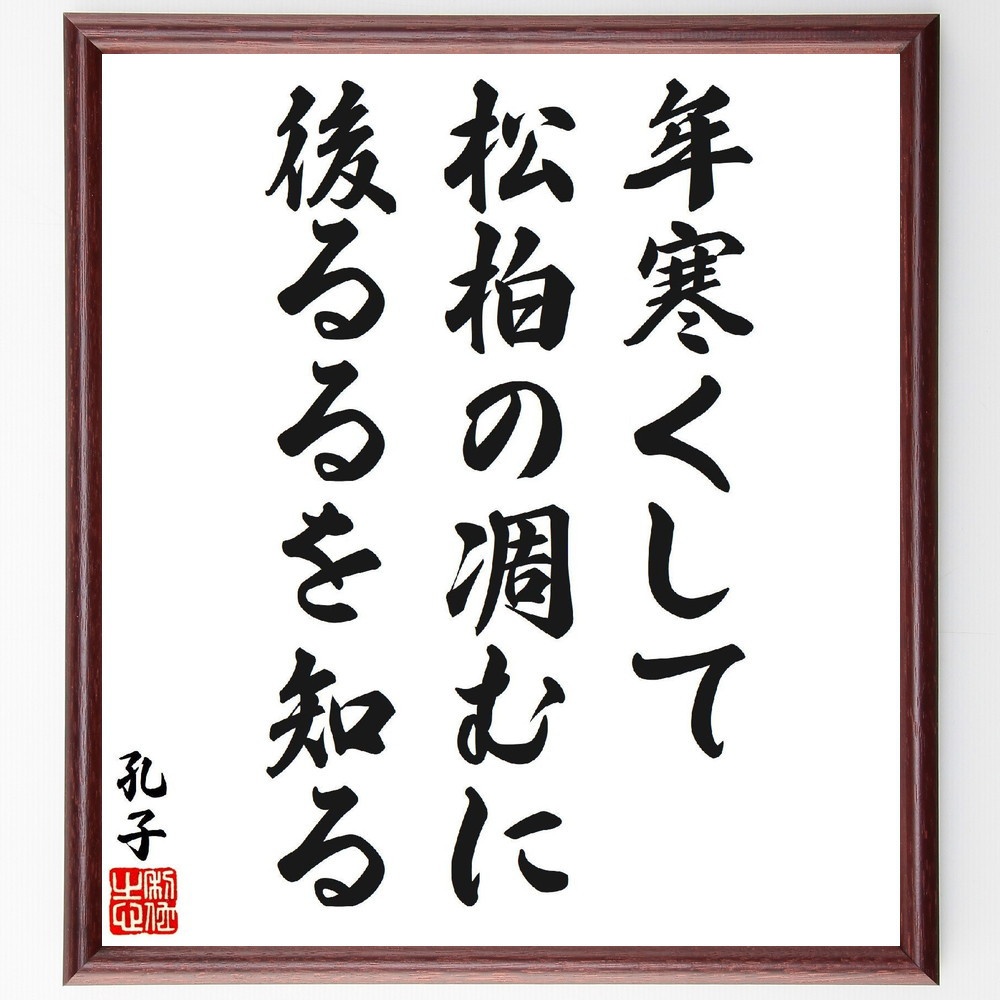 年寒くして
松柏の凋むに
後るるを知る
孔子